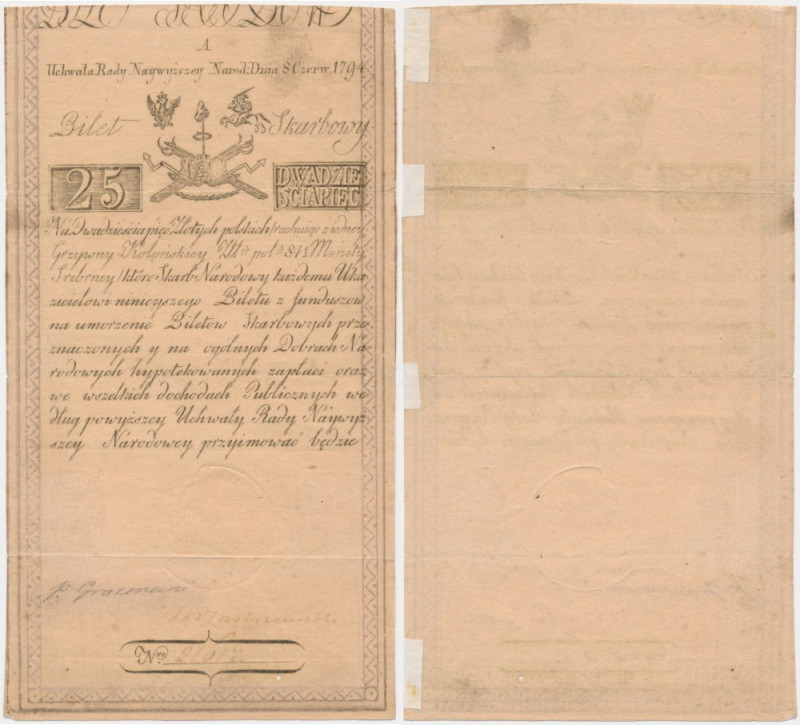 A
Uchwała Rady Naywyższey Narod: Dnia 8 Czerw. 1794
Bilet Skarbowy
25 DWADZIE
ŚCIAPIĘC
Na Dwadzieścia pięć Złotych polskich rachuiąc z iedney
Grzywny Kolońskiey Złt: pol: 84½ Monety
Srebrney które Skarb Narodowy każdemu Uka
zicielowi ninieyszego Biletu z funduszow
na umorzenie Biletow Skarbowych prze
znaczonych y na ogolnych Dobrach Na
rodowych hypotekowanych zapłaci oraz
we wszelkich dochodach Publicznych we
dług powyższey Uchwały Rady Naywyż
szey Narodowey przyimować będzie
Nro